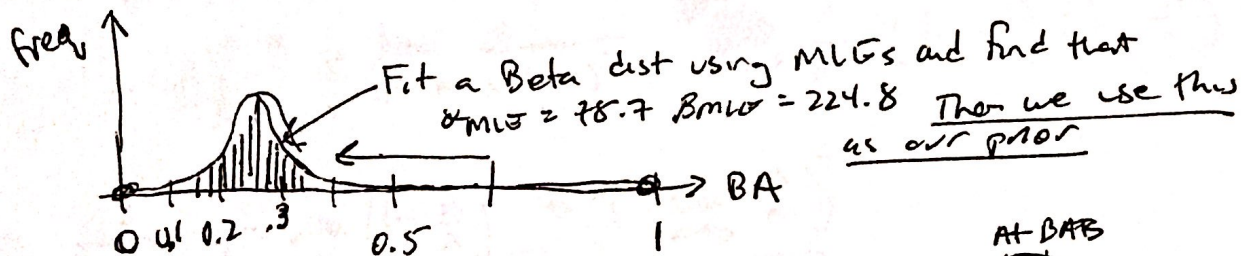 freq
Fit a Beta dist using MLEs and find that
αMLE = 78.7 βMLE = 224.8 Then we use this
as our prior
BA
0 0.1 0.2 .3 0.5 1
At BAB